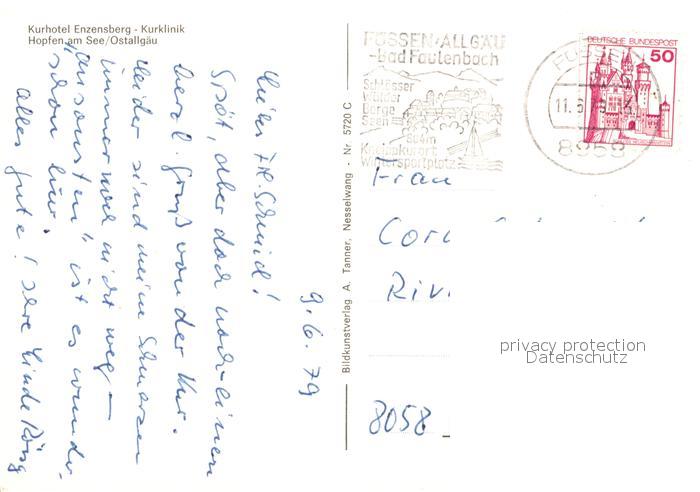 Kurhotel Enzensberg - Kurklinik
Hopfen am See/Ostallgäu
9.6.79
Spät, aber doch noch einen
herzl. Gruß von der Kur.
Leider sind meine Schmerzen
immer noch nicht weg –
"ansonsten" ist es wunder-
schön hier.
Alles Gute! Ihre Linde
Bildkunstverlag A. Tanner, Nesselwang - Nr. 5720 C
FÜSSEN-ALLGÄU
-Bad Faulenbach
Schlösser
Wälder
Berge
Seen
Kneippkurort
Wintersportplatz
FÜSSEN
8958
DEUTSCHE BUNDESPOST
50
Frau
8058
privacy protection
Datenschutz